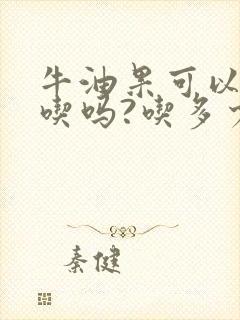 牛油果可以
喫吗?喫多
秦健